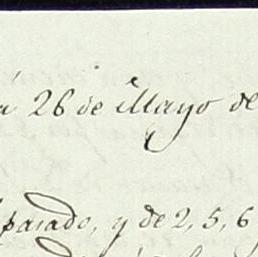 á 26 de Mayo de
pasado, y de 2, 5, 6